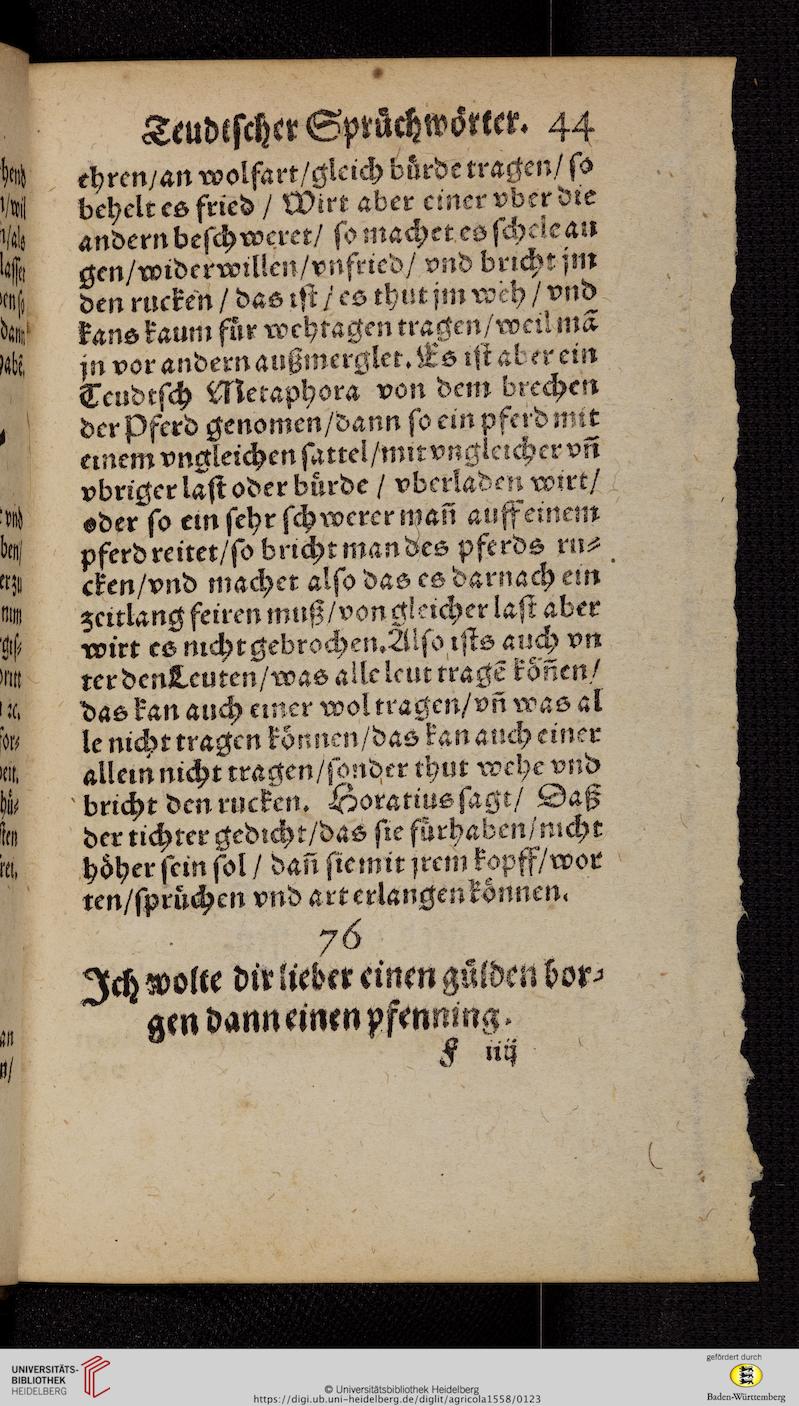 Teudtscher Sprůchwȯrter. 44
ehren/an wolfart/gleich bůrde tragen/ so
behelt es fried / Wirt aber einer vber die
andern beschweret/ so machet es schele au
gen/widerwillen/vnfried/ vnd bricht jm
den rucken / das ist / es thut jm weh / vnd
kans kaum fůr wehtagen tragen/weil mā
jn vor andern außmerglet. Es ist aber ein
Teudtsch Metaphora von dem brechen
der Pferd genomen/dann so ein pferd mit
einem vngleichen sattel/mit vngleicher vn̄
vbriger last oder bůrde / vberladen wirt/
oder so ein sehr schwerer man̄ auff einem
pferd reitet/so bricht man des pferds ru⸗
cken/vnd machet also das es darnach ein
zeitlang feiren muß/von gleicher last aber
wirt es nicht gebrochen. Also ists auch vn
ter den Leuten/was alle leut tragē kȯn̄en/
das kan auch einer wol tragen/vn̄ was al
le nicht tragen kȯnnen/das kan auch einer
allein nicht tragen/sonder thut wehe vnd
bricht den rucken. Horatius sagt/ Daß
der tichter gedicht/das sie fůrhaben/nicht
hȯher sein sol / dan̄ sie mit jrem kopff/wor
ten/sprůchen vnd art erlangen kȯnnen.
76
Ich wolte dir lieber einen gůlden bor⸗
gen dann einen pfenning.
F iiij
hend
/wil
/als
lasset
dan
habe,
vnd
ben/
er zu
nim
UNIVERSITÄTS-
BIBLIOTHEK
HEIDELBERG
© Universitätsbibliothek Heidelberg
https://digi.ub.uni-heidelberg.de/diglit/agricola1558/0123
gefördert durch
Baden-Württemberg